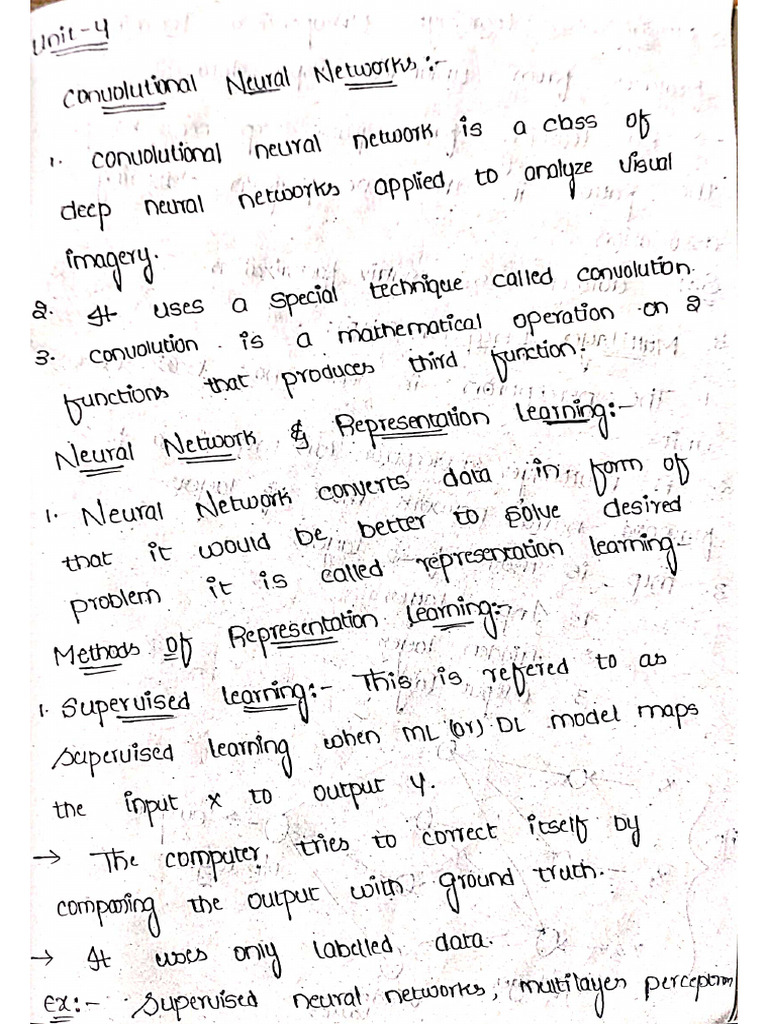 Unit-4
Convolutional Neural Networks:-
1. Convolutional neural network is a class of
deep neural networks applied to analyze visual
imagery.
2. It uses a special technique called convolution.
3. convolution is a mathematical operation on 2
functions that produces third function.
Neural Network & Representation learning:-
1. Neural Network converts data in form of
that it would be better to solve desired
problem it is called representation learning-
Methods of Representation learning:-
1. Supervised learning:- This is refered to as
supervised learning when ML (or) DL model maps
the input x to output y.
→ The computer tries to correct itself by
comparing the output with ground truth.
→ It uses only labelled data.
Ex:- Supervised neural networks, multilayer perceptron